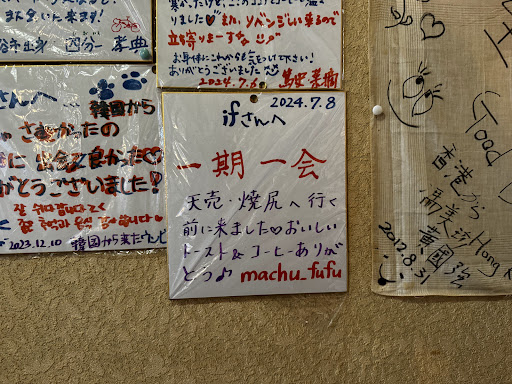 また会いに来ます!
孝典
また、リベンジしに来るので
立寄りまーすな
お身体にこれからも気をつけて下さい!
ありがとうございました
2024.7.6
さんへ
韓国から
さむかったの
に 出会えて良かった♡
がとうございました!
2023.12.10 韓国から来た
2024.7.8
ifさんへ
一期一会
天売・焼尻へ行く
前に来ました♡おいしい
トースト&コーヒーありが
とう♪ machu_fufu
Food
香港から
馮美玲 Hong K
黄國強
2012.8.31